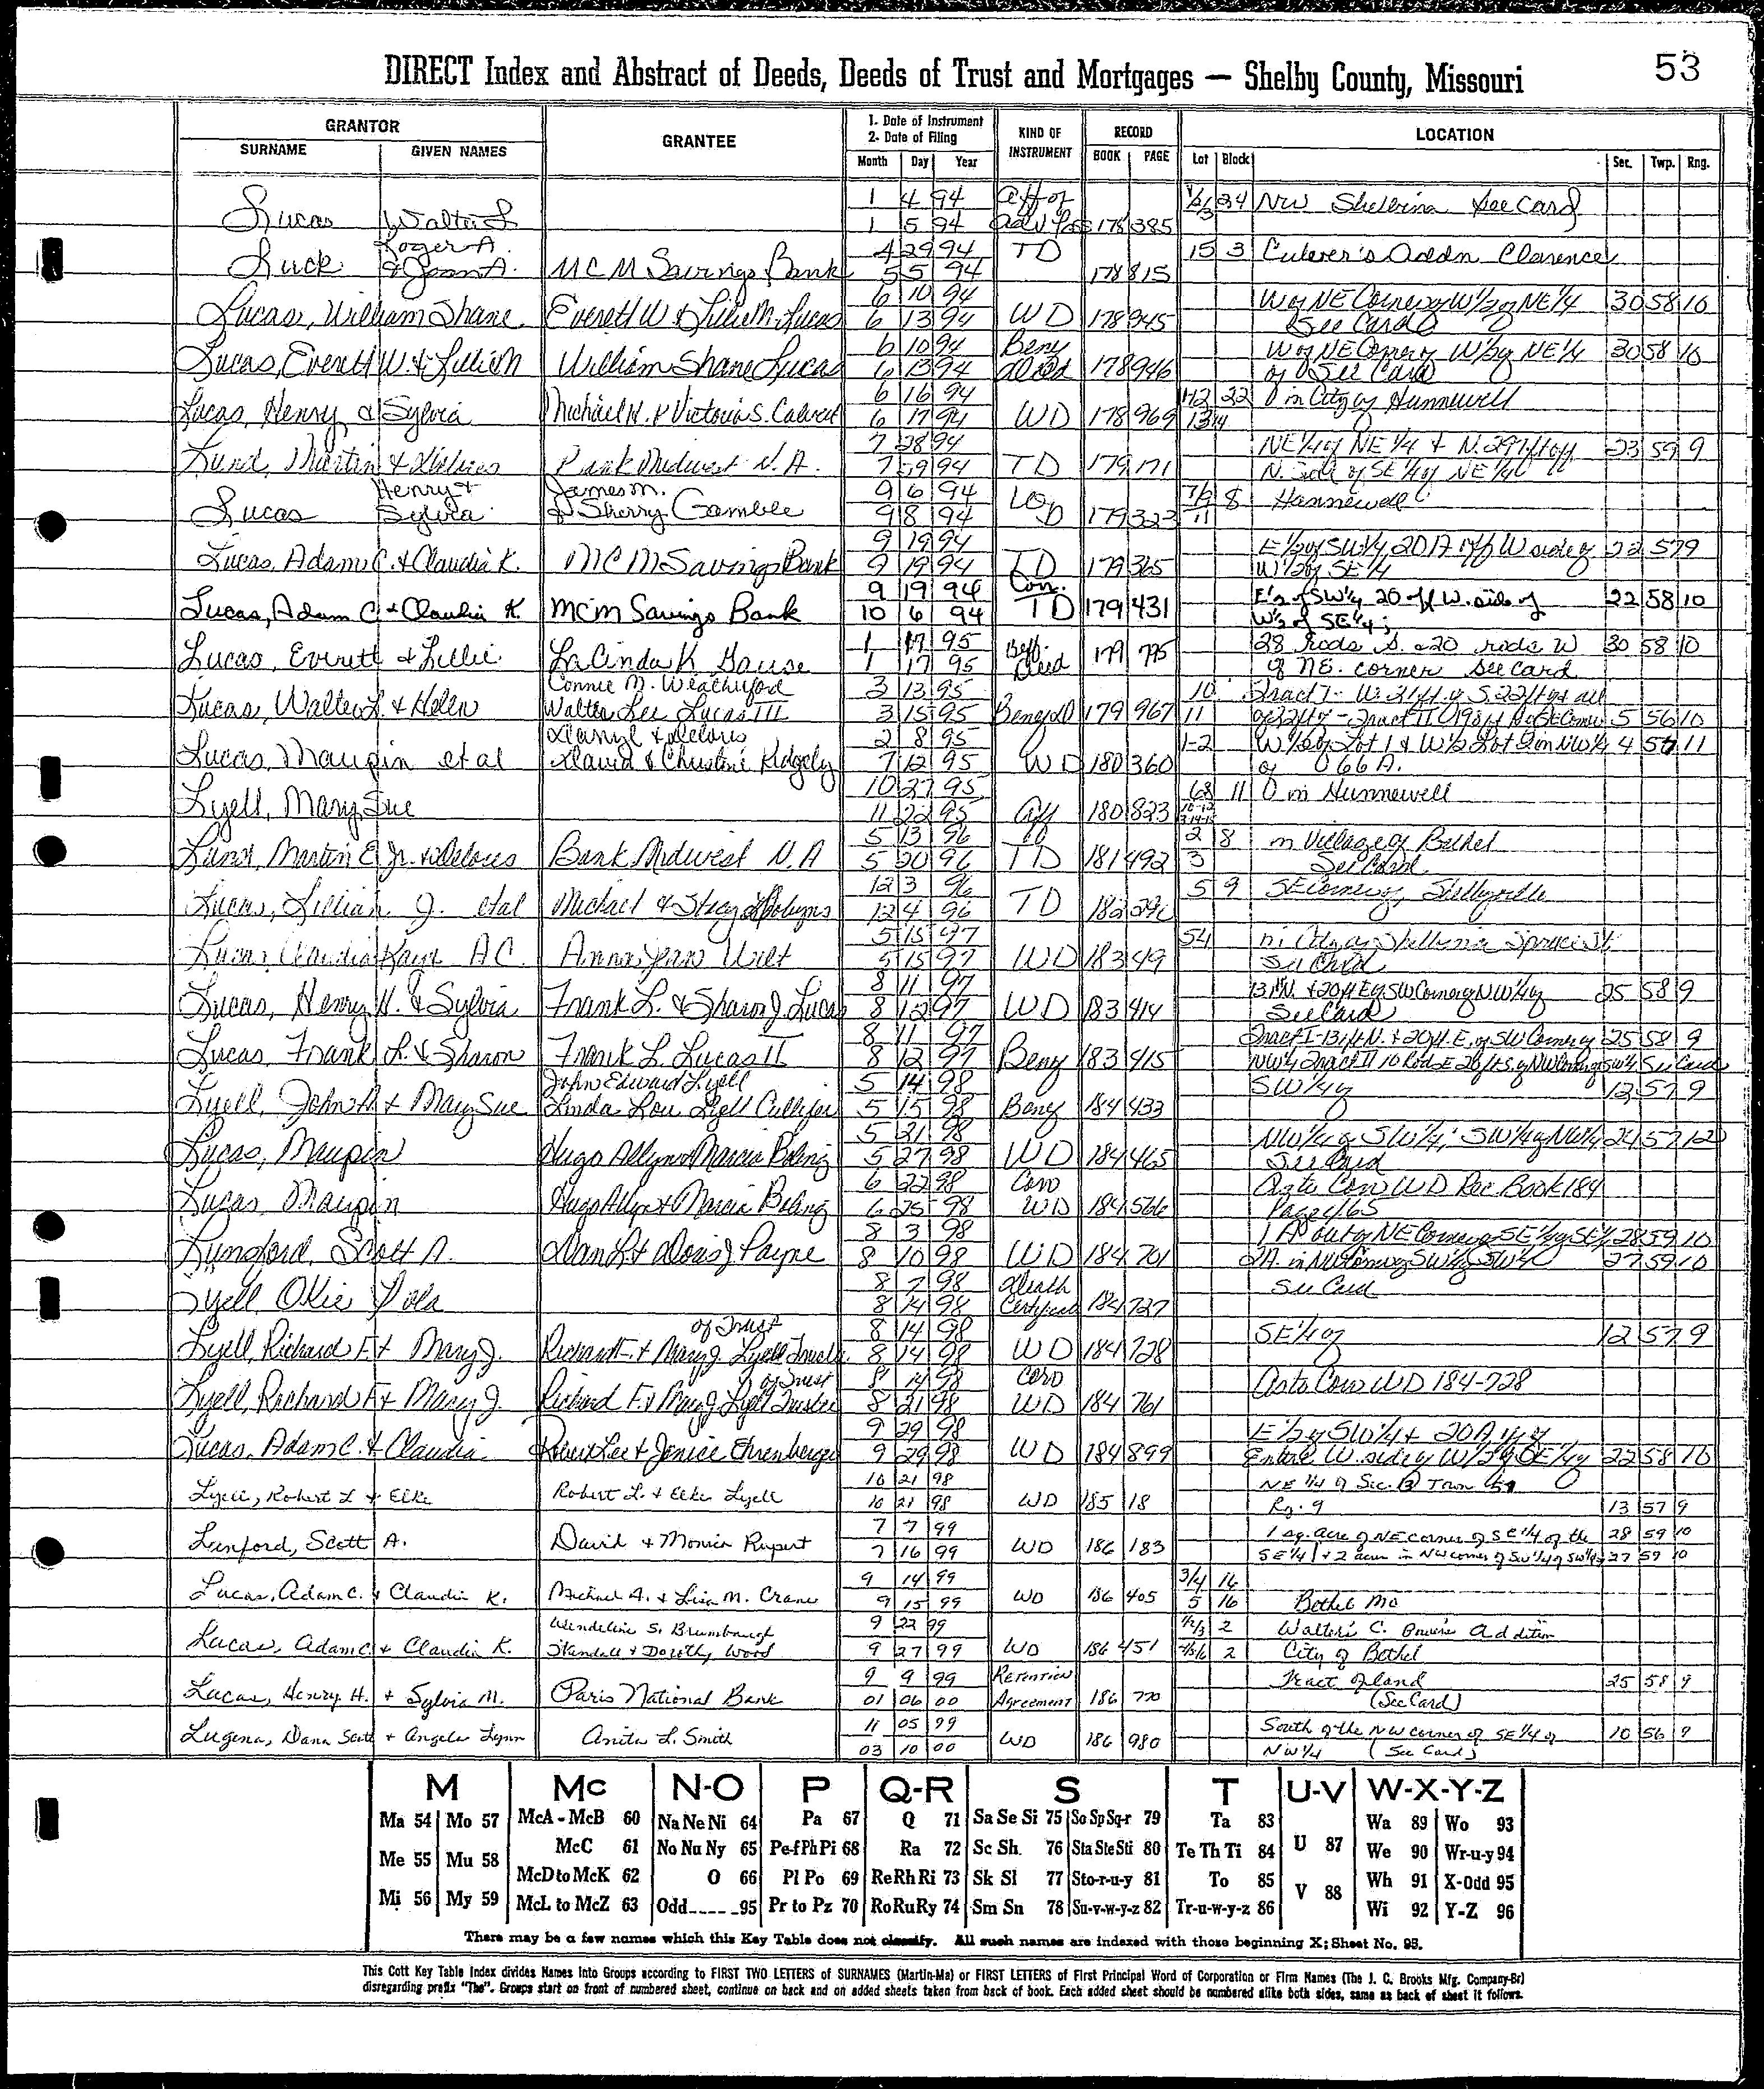 53
DIRECT Index and Abstract of Deeds, Deeds of Trust and Mortgages — Shelby County, Missouri
GRANTOR GRANTEE 1. Date of Instrument 2. Date of Filing KIND OF INSTRUMENT RECORD LOCATION
SURNAME GIVEN NAMES Month Day Year BOOK PAGE Lot Block Sec. Twp. Rng.
1 4 94 Aff of 34 NW Shelbina See Card
Lucas Walter L 1 5 94 178 385
Roger A. 4 29 94 TD 15 3 Culver's Addn Clarence
Luck & Joan A. MCM Savings Bank 5 5 94 178 815
6 10 94 W of NE Corner of W 1/2 of NE 1/4 30 58 10
Lucas, William Shane Everett W & Lillie M. Lucas 6 13 94 WD 178 945 See Card
6 10 94 Beny W of NE Corner of W 1/2 of NE 1/4 30 58 10
Lucas, Everett W. & Lillie M William Shane Lucas 6 13 94 Deed 178 946 of See Card
6 16 94 22 in City of Hunnewell
Lucas, Henry & Sylvia Michael H. & Victoria S. Calvert 6 17 94 WD 178 969 13 14
7 28 94 NE 1/4 of NE 1/4 & N. 297 ft off 23 59 9
Lund, Martin & Delores Bank Midwest N.A. 7 29 94 TD 179 171 N. side of SE 1/4 of NE 1/4
Henry & James M. 9 6 94 8 Hunnewell
Lucas Sylvia & Sherry Gamble 9 8 94 WD 179 323 11
9 19 94 E 1/2 of SW 1/4 20 A off W side of 22 57 9
Lucas, Adam C. & Claudia K. MCM Savings Bank 9 19 94 TD 179 365 W 1/2 of SE 1/4
9 19 94 Corr. E 1/2 of SW 1/4 20 off W. side of 22 58 10
Lucas, Adam C & Claudia K. MCM Savings Bank 10 6 94 TD 179 431 W 1/2 of SE 1/4;
1 17 95 Beff. 28 Rods S. & 20 rods W 30 58 10
Lucas, Everett & Lillie LaCinda K Gause 1 17 95 Deed 179 775 of NE. corner See Card
Connie M. Weatherford 3 13 95 10 Tract I - W. 31 ft. of S. 22 ft of all
Lucas, Walter L. & Helen Walter Lee Lucas III 3 15 95 Beny D 179 967 11 5 56 10
Darryl & Delores 2 8 95 1-2 W 1/2 of Lot 1 & W 1/2 Lot 2 in NW 1/4 4 57 11
Lucas, Maupin et al David & Christine Ridgely 7 12 95 WD 180 360 of 66 A.
10 27 95 11 in Hunnewell
Lyell, Mary Sue 11 22 95 Aff 180 823
5 13 96 2 8 in Village of Bethel
Lund, Martin E Jr. & Delores Bank Midwest N.A 5 20 96 TD 181 492 3 See Card
12 3 96 5 9 SE Corner of Shelbyville
Lucas, Lillian J. et al Michael & Stacy 12 4 96 TD 182
5 15 97 54 in City of Shelbina Spruce St.
Lucas, Claudia Kaye AC Anna Jean Wilt 5 15 97 WD 183 49 See Card
8 11 97 13 ft N. & 20 ft E of SW Corner of NW 1/4 of 25 58 9
Lucas, Henry H. & Sylvia Frank L. & Sharon J. Lucas 8 12 97 WD 183 414 See Card
8 11 97 Tract I - 13 ft N. & 20 ft. E. of SW Corner of 25 58 9
Lucas, Frank L. & Sharon Frank L. Lucas II 8 12 97 Beny 183 415 NW 1/4 Tract II 10 Rods E 26 ft S. of NW Corner of SW 1/4 See Card
John Edward Lyell 5 14 98 SW 1/4 of 12 57 9
Lyell, John A & Mary Sue Linda Lou Lyell Culliper 5 15 98 Beny 184 433
5 21 98 NW 1/4 of SW 1/4; SW 1/4 of NW 1/4 24 57 12
Lucas, Maupin Hugo Allyn & Marcia Boling 5 27 98 WD 184 465 See Card
6 22 98 Corr As to Corr WD Rec Book 184
Lucas, Maupin Hugo Allyn & Marcia Boling 6 25 98 WD 184 566 Page 465
8 3 98 1 A out of NE Corner of SE 1/4 of SE 1/4 28 59 10
Lunsford, Scott A. Dan L & Doris J Payne 8 10 98 WD 184 701 2 A. in NW Corner of SW 1/4 of SW 1/4 27 59 10
8 7 98 Death See Card
Lyell, Olie Vola 8 14 98 Certificate 184 727
of Trust 8 14 98 SE 1/4 of 12 57 9
Lyell, Richard F. & Mary J. Richard F. & Mary J. Lyell Trustee 8 14 98 WD 184 728
of Trust 8 14 98 Corr As to Corr WD 184-728
Lyell, Richard F & Mary J Richard F. & Mary J Lyell Trustee 8 21 98 WD 184 761
9 29 98 E 1/2 of SW 1/4 & 20 A off of
Lucas, Adam C. & Claudia Robert Lee & Janice Ehrenberger 9 29 98 WD 184 899 Entire W. side of W 1/2 of SE 1/4 of 22 58 10
10 21 98 NE 1/4 of Sec. 13 Town 57
Lyell, Robert L & Elke Robert L. & Elke Lyell 10 21 98 WD 185 18 Rg. 9 13 57 9
7 7 99 1 sq. acre of NE corner of SE 1/4 of the 28 59 10
Lunford, Scott A. David & Monica Rupert 7 16 99 WD 186 183 SE 1/4 & 2 acres in NW corner of SW 1/4 of SW 1/4 27 59 10
9 14 99 3/4 16
Lucas, Adam C. & Claudia K. Michael A. & Lisa M. Crane 9 15 99 WD 186 405 5 16 Bethel Mo
Wendeline S. Brumbaugh 9 22 99 2 Walter C. Bower's Addition
Lucas, Adam C. & Claudia K. Kendall & Dorothy Wood 9 27 99 WD 186 451 2 City of Bethel
9 9 99 Retention Tract of land 25 58 9
Lucas, Henry H. & Sylvia M. Paris National Bank 01 06 00 Agreement 186 770 (See Card)
11 05 99 South of the NW corner of SE 1/4 of 10 56 9
Lugena, Dana Scott & Angela Lynn Anita L. Smith 03 10 00 WD 186 980 NW 1/4 (See Card)
M Mc N-O P Q-R S T U-V W-X-Y-Z
Ma 54 Mo 57 McA - McB 60 Na Ne Ni 64 Pa 67 Q 71 Sa Se Si 75 So Sp Sq-r 79 Ta 83 Wa 89 Wo 93
McC 61 No Nu Ny 65 Pe-f Ph Pi 68 Ra 72 Sc Sh. 76 Sta Ste Sti 80 Te Th Ti 84 U 87 We 90 Wr-u-y 94
Me 55 Mu 58 McD to McK 62 O 66 Pl Po 69 Re Rh Ri 73 Sk Sl 77 Sto-r-u-y 81 To 85 V 88 Wh 91 X-Odd 95
Mi 56 My 59 McL to McZ 63 Odd---- 95 Pr to Pz 70 Ro Ru Ry 74 Sm Sn 78 Su-v-w-y-z 82 Tr-u-w-y-z 86 Wi 92 Y-Z 96
There may be a few names which this Key Table does not classify. All such names are indexed with those beginning X; Sheet No. 95.
This Cott Key Table Index divides Names into Groups according to FIRST TWO LETTERS of SURNAMES (Martin-Ma) or FIRST LETTERS of First Principal Word of Corporation or Firm Names (The J. C. Brooks Mfg. Company-Br)
disregarding prefix "The". Groups start on front of numbered sheet, continue on back and on added sheets taken from back of book. Each added sheet should be numbered alike both sides, same as back of sheet it follows.